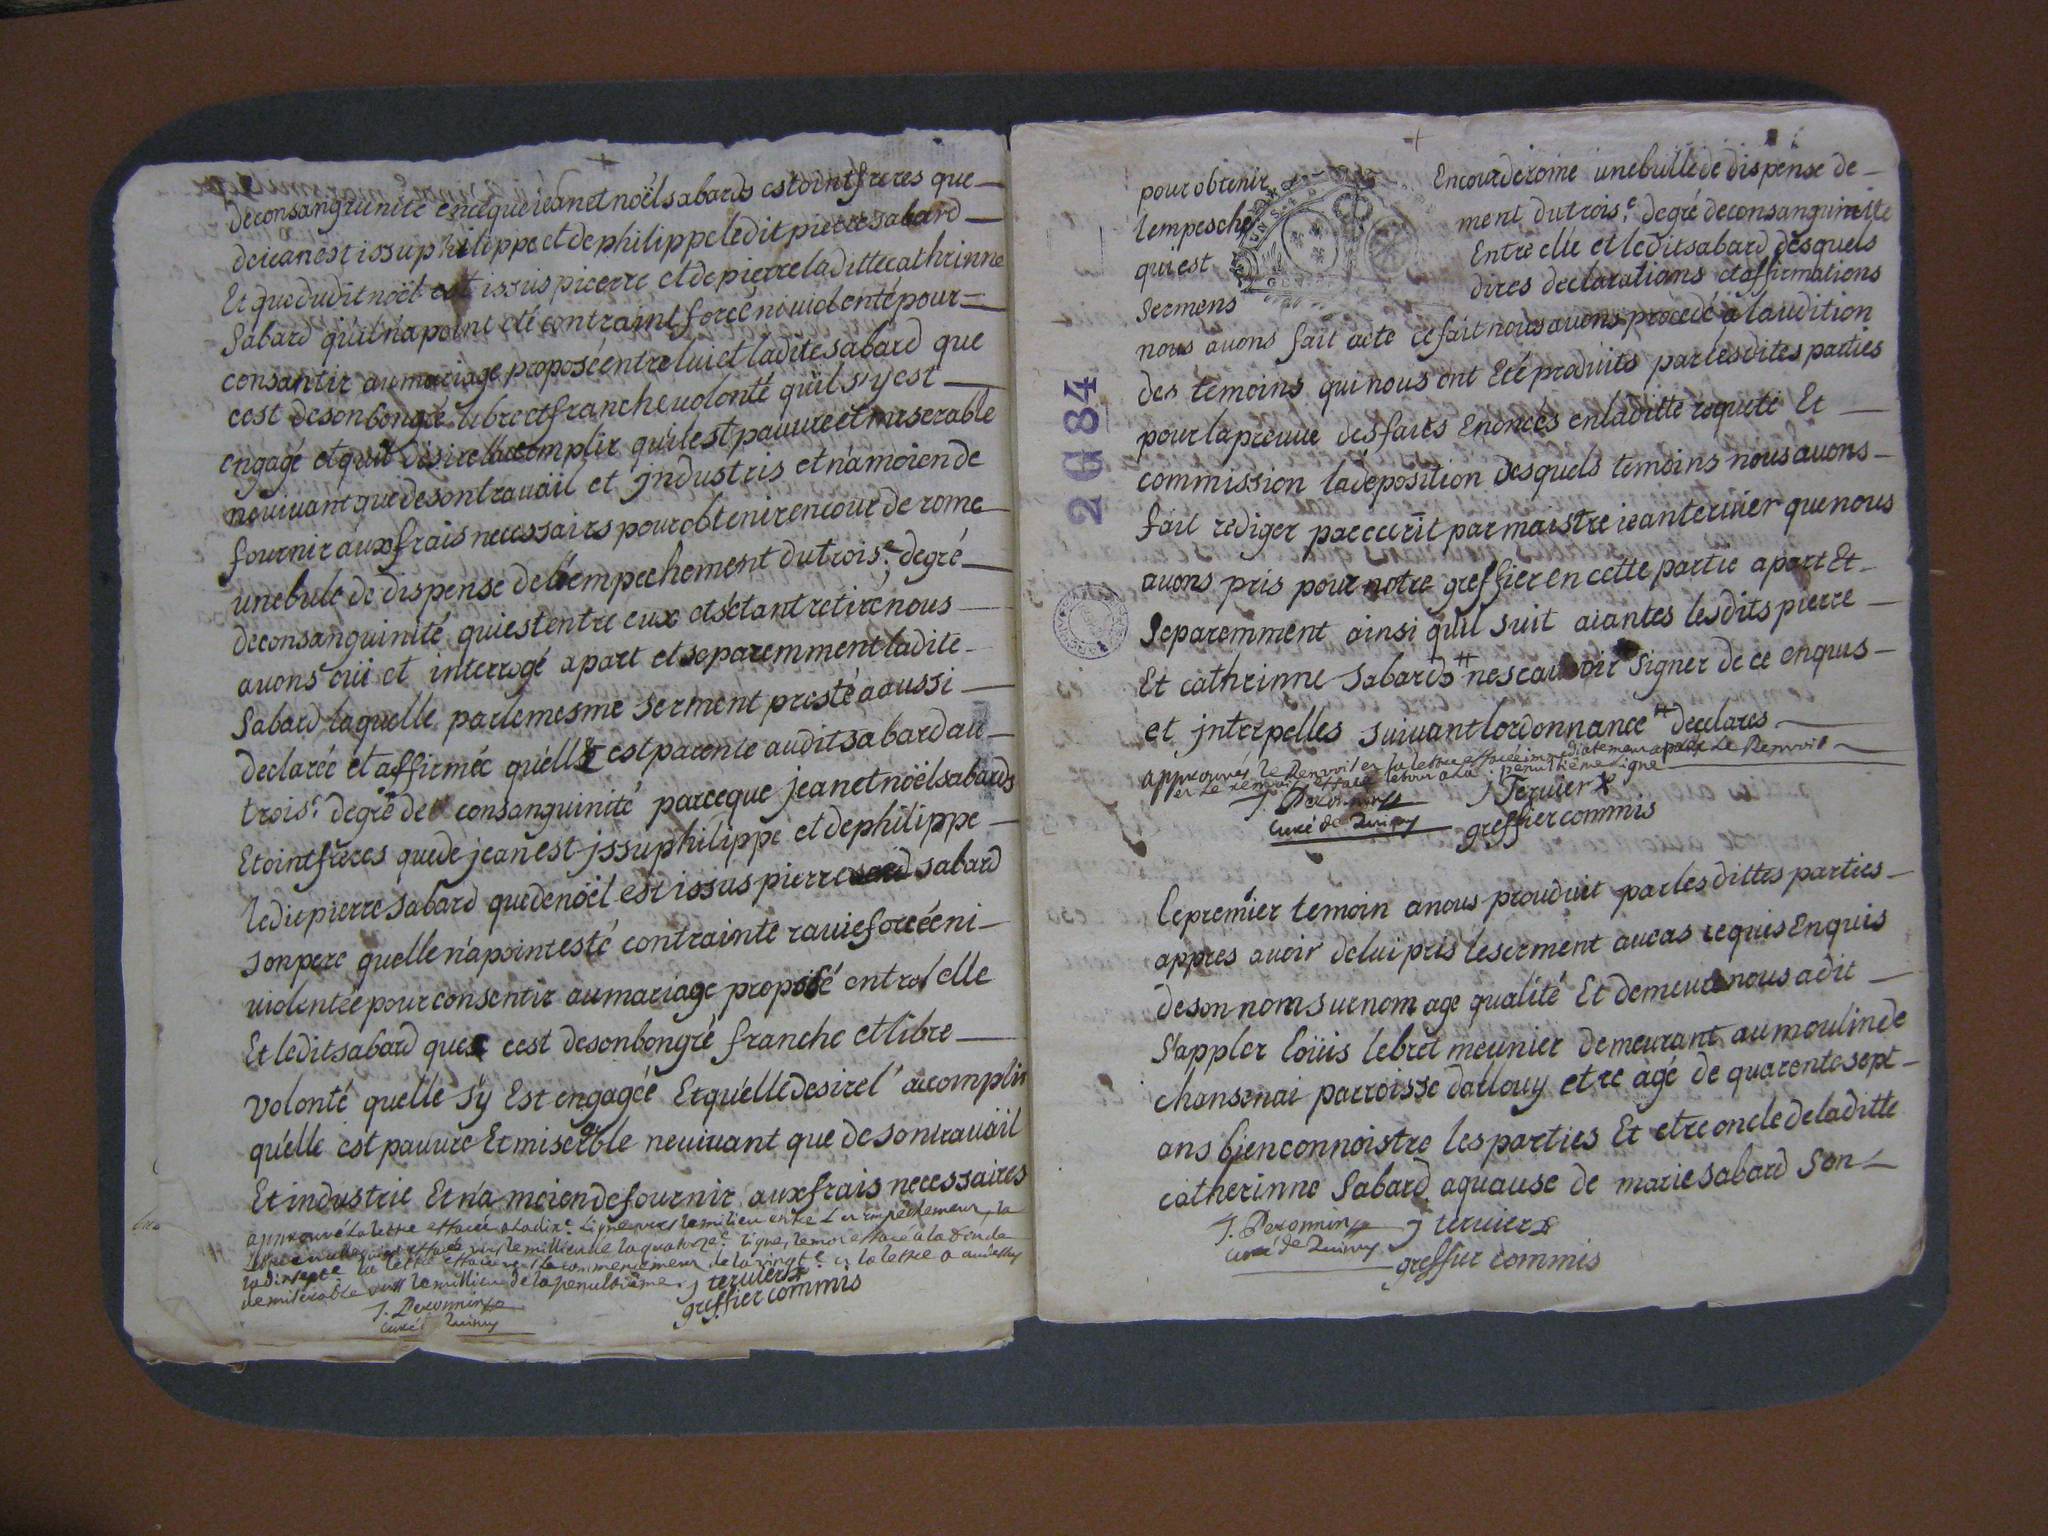 deconsanguinité enceque jean et noël sabards estoint freres que
de jean est issu philippe et de philippe ledit pierre sabard
Et que dudit noël est issuis picerre et de pierre laditte cathrinne
Sabard quil na point eté contraint forcé ni violenté pour
consantir au mariage proposé entre lui et ladite sabard que
cest de son bongré libre et franche volonté quil s'y est
engagé et quil desire laccomplir quil est pauvre et miserable
ne vivant que de son travail et jndustris et na moien de
fournir aux frais necessairs pour obtenir en cour de rome
une bule de dispense de lempechement du trois.e degré
deconsanguinité qui est entre eux et s'etant retiré nous
avons oüi et interrogé apart et separemment ladite
Sabard laquelle par le mesme serment presté a aussi
declarée et affirmée quelle est parente audit sabard au
trois.e degré de consanguinité parceque jean et noël sabards
Etoint freres que de jean est jssu philippe et de philippe
ledit pierre sabard que de noël est issus pierre sabard
son pere quelle n'a point esté contrainte ravie forcée ni
violentée pour consentir au mariage proposé entre elle
Et ledit sabard que cest de son bongré franche et libre
volonté quelle s'y Est engagée Et quelle desire l'acomplir
quelle est pauvre Et miserable ne vivant que de son travail
Et industrie Et n'a moien de fournir aux frais necessaires
approuvé la lettre effacée a la dix.e Ligne vers le milieu entre L et empechement, la
vers le millieu de la quatorze.e ligne, le mot effacé a la fin de
la dixsept.e la lettre effacée vers le commencement de la vingt.e et la lettre a au dessus
de miserable vers le millieu de la penultième. j tervier
greffier commis
J. Peronnin
curé de Quincy
pour obtenir En cour de rome une bulle de dispense de
lempesche ment du trois.e degré de consanguinitte
qui est Entre elle et ledit sabard desquels
Sermens dires declarations et affirmations
nous avons fait acte ce fait nous avons procedé a laudition
des temoins qui nous ont Eté produits par lesdites parties
pour la preuve des faits Enoncés en laditte requeté Et
commission la deposition desquels temoins nous avons
fait rediger par ecerit par maistre jean tervier que nous
avons pris pour notre greffier en cette partie apart Et
Separemment ainsi quil suit aiantes lesdits pierre
Et cathrinne Sabards # ne scavoir Signer de ce enquis
et jnterpelles suivant lordonnance # declares
approuvés le Renvoit et la lettre effacée immediatement apres Le Renvoit
J. Peronnin
curé de Quincy
j Tervier
greffier commis
le premier temoin a nous prouduit par les dittes parties
appres avoir de lui pris le serment au cas requis Enquis
de son nom surnom age qualité Et demeure nous a dit
S'appler loüis lebret meunier demeurant au moulin de
chansenai parroisse dallouy etre agé de quarente sept
ans bien connoistre les parties Et etre oncle de laditte
catherinne Sabard a quause de marie sabard Son
J. Peronnin
curé de Quincy
j tervier
greffier commis
2 G 84